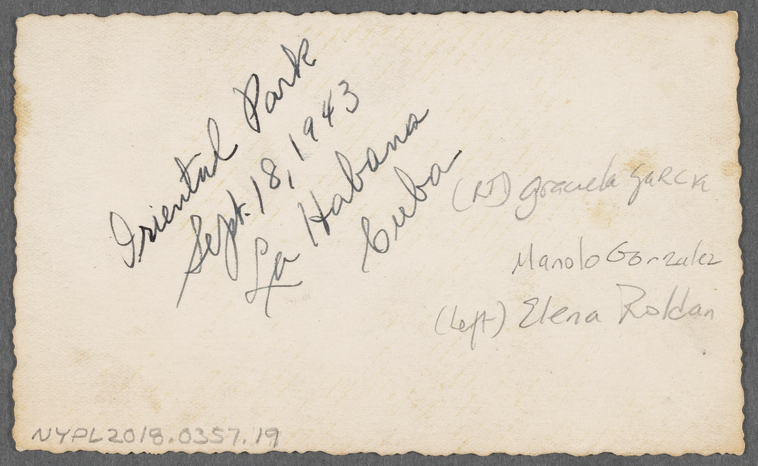 Oriental Park
Sept. 18, 1943
La Habana
Cuba
(RT) Graciela GARCIA
Manolo Gonzalez
(Left) Elena Roldan
NYPL2018.0357.19